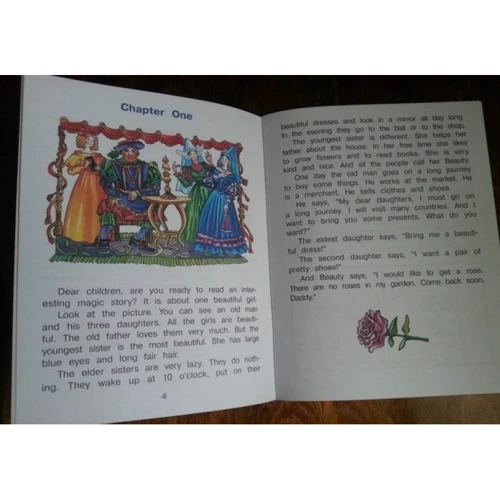 Chapter One
Dear children, are you ready to read an inter-
esting magic story? It is about one beautiful girl.
Look at the picture. You can see an old man
and his three daughters. All the girls are beauti-
ful. The old father loves them very much. But the
youngest sister is the most beautiful. She has large
blue eyes and long fair hair.
The elder sisters are very lazy. They do noth-
ing. They wake up at 10 o'clock, put on their
4
beautiful dresses and look in a mirror all day long.
In the evening they go to the ball or to the shop.
The youngest sister is different. She helps her
father about the house. In her free time she likes
to grow flowers and to read books. She is very
kind and nice. And all the people call her Beauty.
One day the old man goes on a long journey
to buy some things. He works at the market. He
is a merchant. He sells clothes and shoes.
He says, "My dear daughters, I must go on
a long journey. I will visit many countries. And I
want to bring you some presents. What do you
want?"
The eldest daughter says, "Bring me a beauti-
ful dress!"
The second daughter says, "I want a pair of
pretty shoes!"
And Beauty says, "I would like to get a rose.
There are no roses in my garden. Come back soon,
Daddy."